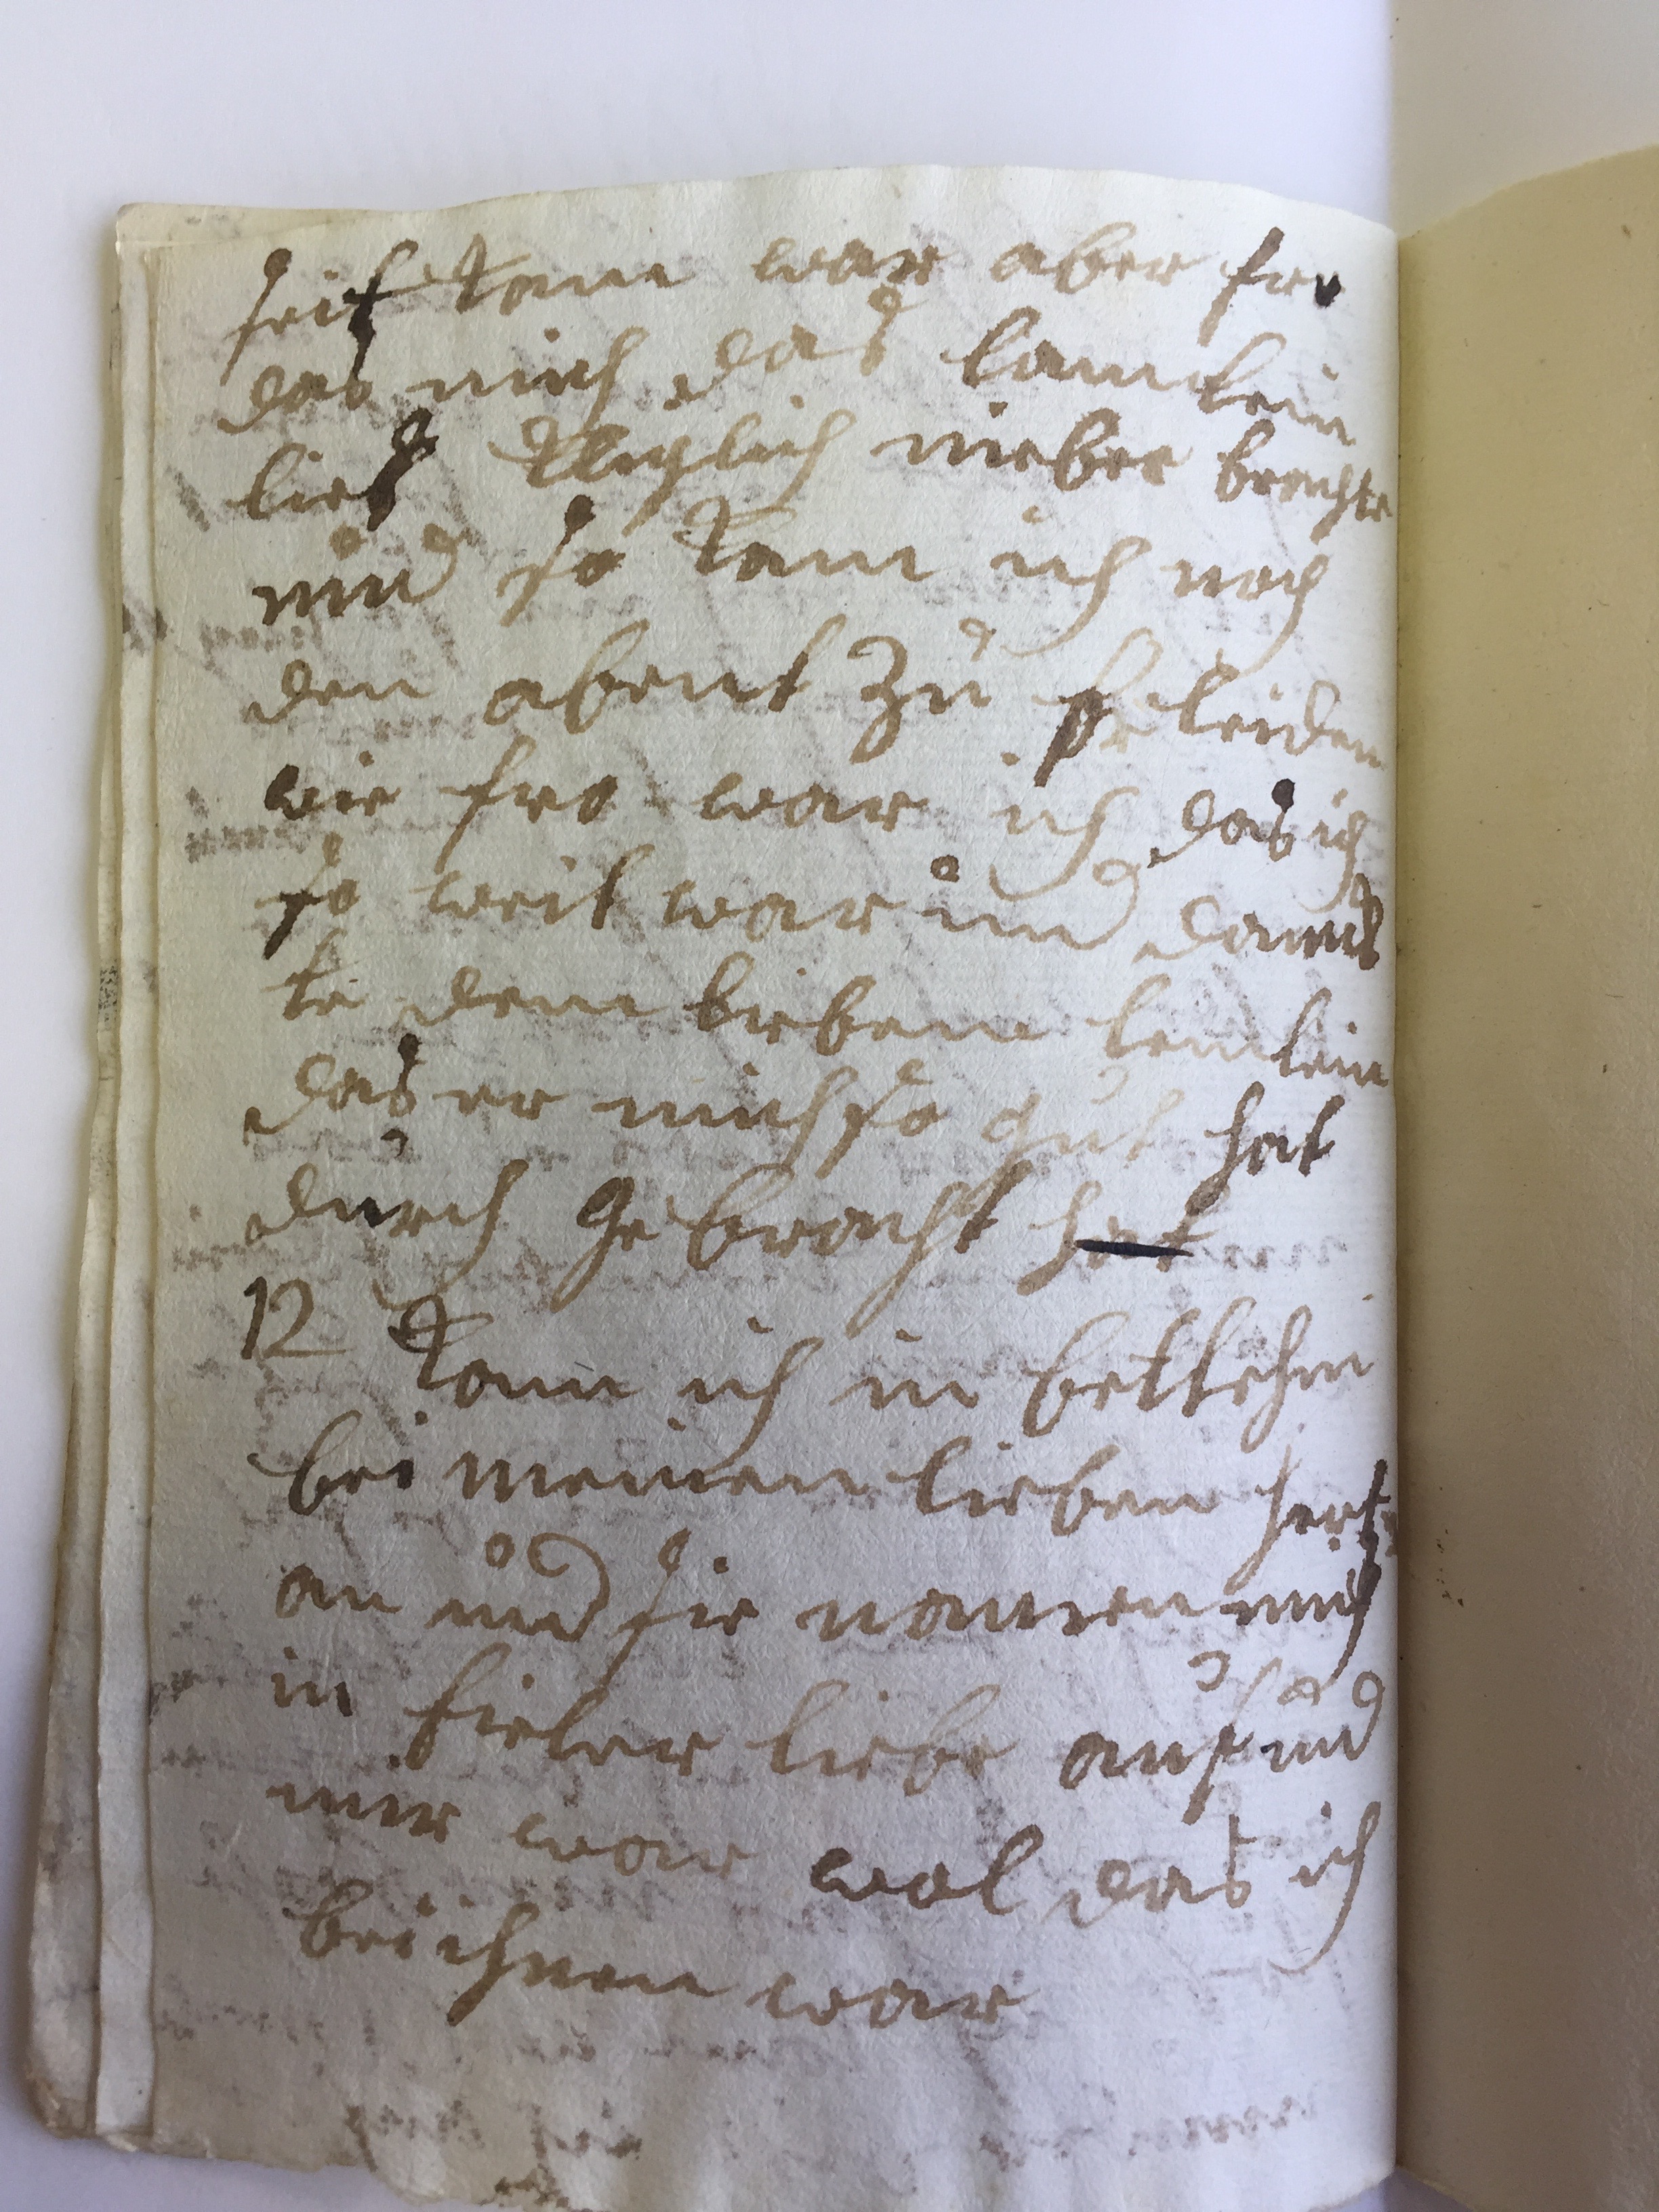 seit kam war aber fro
das mich das lamlein
lies klüglich nieber brachte
und so kam ich noch
den abent zu heleiden
wie fro war ich das ich
so weit war und danck
te dem lieben lemlein
das er mich so gut hat
durch gebracht hat
12 kam ich in betlehm
bei meinen lieben hertz
an und sie namen mich
in fieler liebe auf und
mir war wol das ich
bei ihnen war